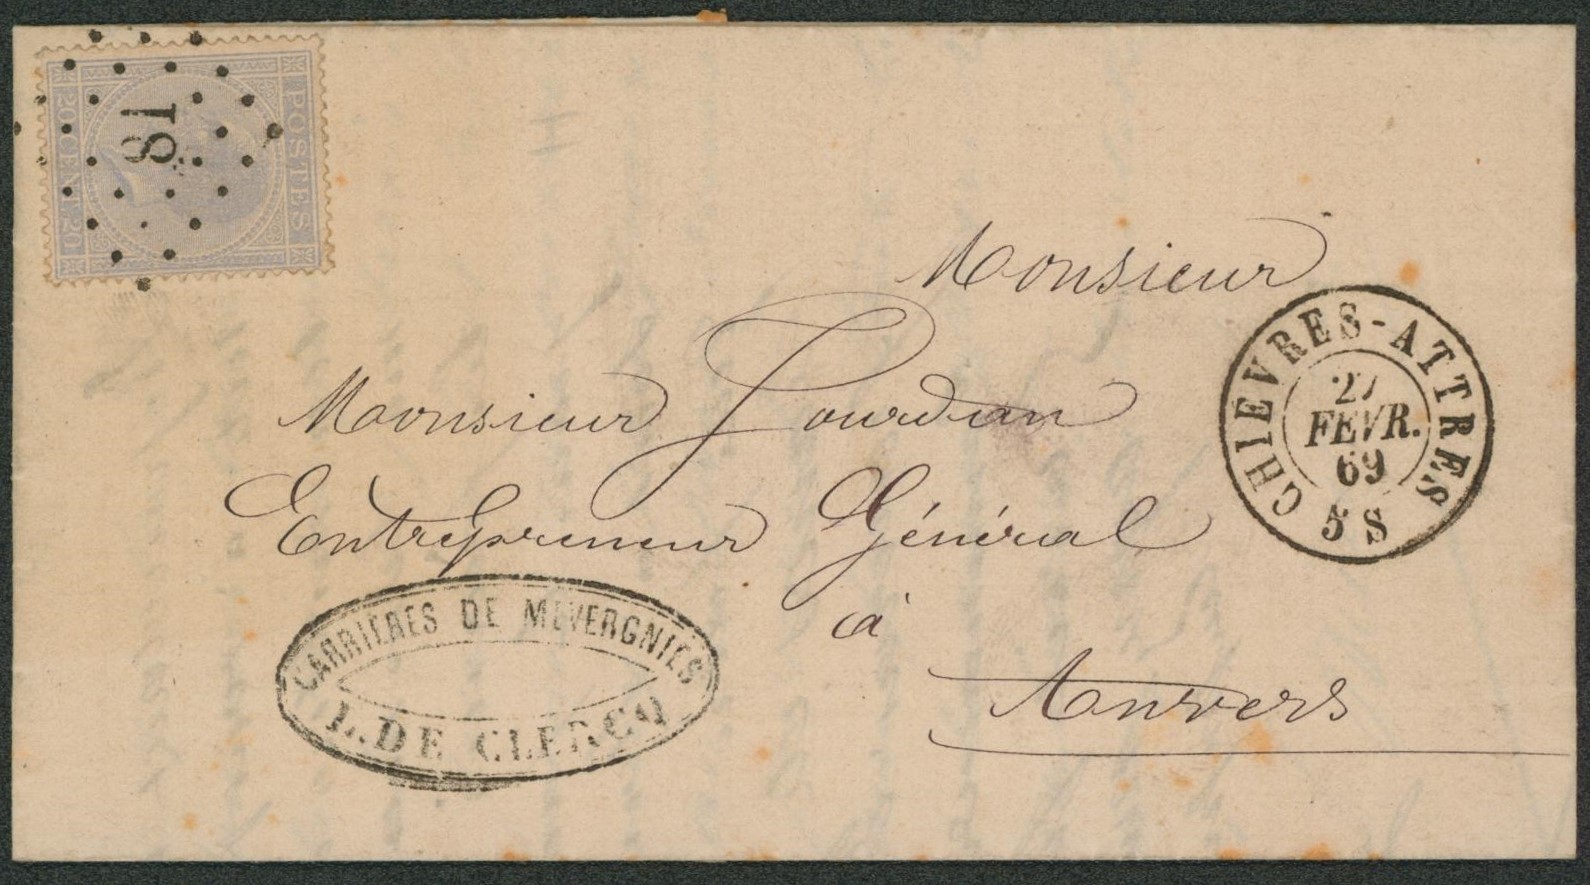 POSTES
81
20 CENT. 20
Monsieur
Monsieur Jourdan
Entrepreneur Général
à
Anvers
CHIEVRES-ATTRES
27
FEVR.
69
5 S
CARRIÈRES DE MEVERGNIES
L. DE CLERCQ